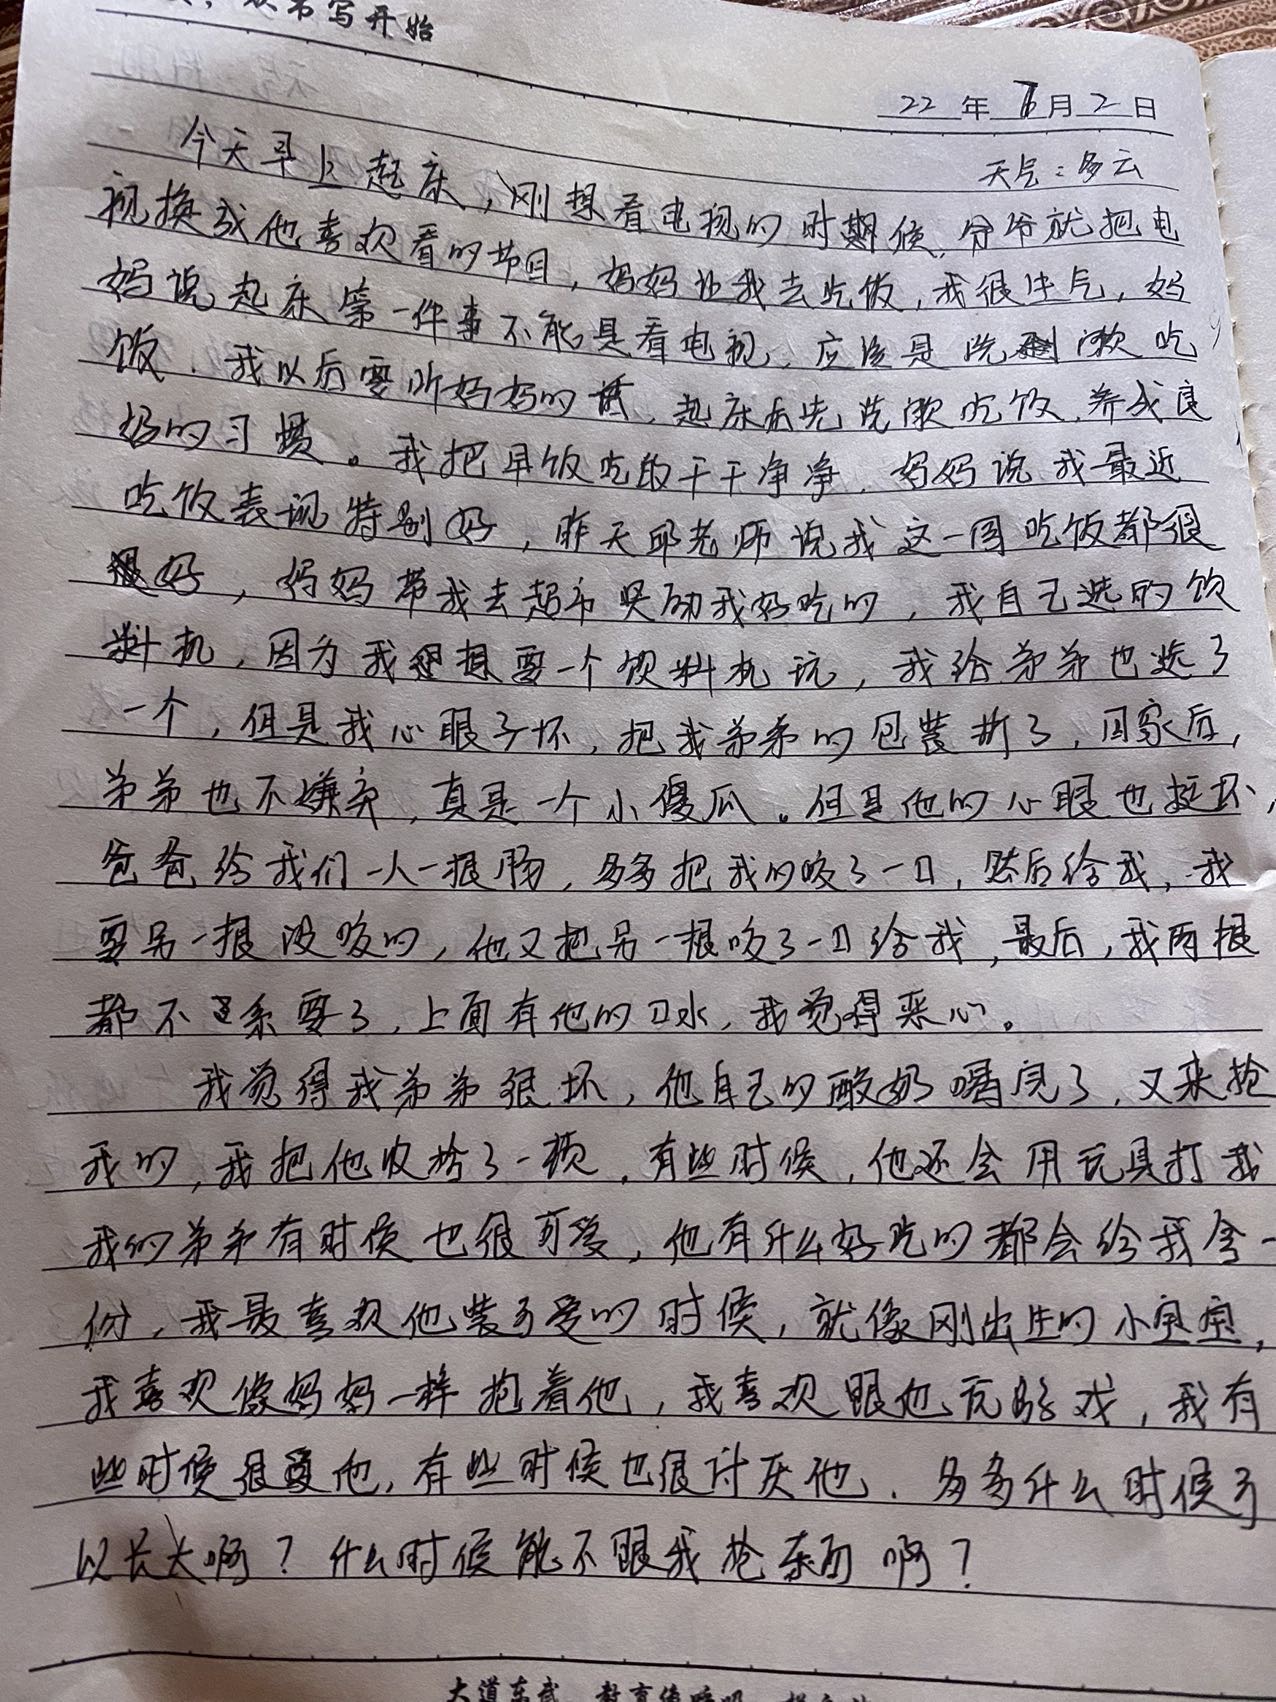 从书写开始
22年7月2日
天气：多云
今天早上起床，刚想看电视的时候，爷爷就把电
视换成他喜欢看的节目，妈妈让我去吃饭，我很生气，妈
妈说起床第一件事不能是看电视，应该是洗漱吃
饭，我以后要听妈妈的话，起床后先洗漱吃饭，养成良
好的习惯。我把早饭吃的干干净净，妈妈说我最近
吃饭表现特别好，昨天邱老师说我这一周吃饭都很
好，妈妈带我去超市奖励我好吃的，我自己选的饮
料机，因为我想要一个饮料机玩，我给弟弟也选了
一个，但是我心眼子坏，把我弟弟的包装拆了，回家后，
弟弟也不嫌弃，真是一个小傻瓜。但是他的心眼也挺坏，
爸爸给我们一人一根肠，多多把我的咬了一口，然后给我，我
要另一根没咬的，他又把另一根咬了一口给我，最后，我两根
都不要了，上面有他的口水，我觉得恶心。
我觉得我弟弟很坏，他自己的酸奶喝完了，又来抢
我的，我把他收拾了一顿，有些时候，他还会用玩具打我
我的弟弟有时候也很可爱，他有什么好吃的都会给我拿一
份，我最喜欢他装可爱的时候，就像刚出生的小宝宝，
我喜欢像妈妈一样抱着他，我喜欢跟他玩游戏，我有
些时候很爱他，有些时候也很讨厌他，多多什么时候可
以长大啊？什么时候能不跟我抢东西啊？
大道东武